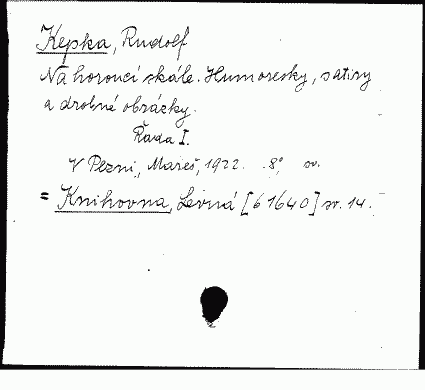 Kepka, Rudolf
Na horoucí skále. Humoresky, satiry
a drobné obrázky.
Řada I.
V Plzni, Mareš, 1922. 8°, sv.
= Knihovna, Levná [61640] sv. 14.